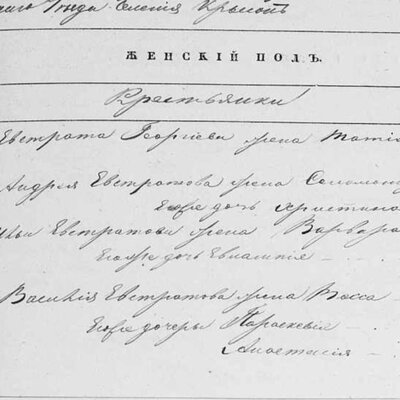 ЖЕНСКІЙ ПОЛЪ.
Крестьянки
Евстрата Георгіева жена
Андрея Евстратова жена Соломон
Его же дочь Христина
Ильи Евстратова жена Варвара
Его же дочь Евлампія
Василія Евстратова жена Васса
Его же дочеры Параскевія
Анастасія